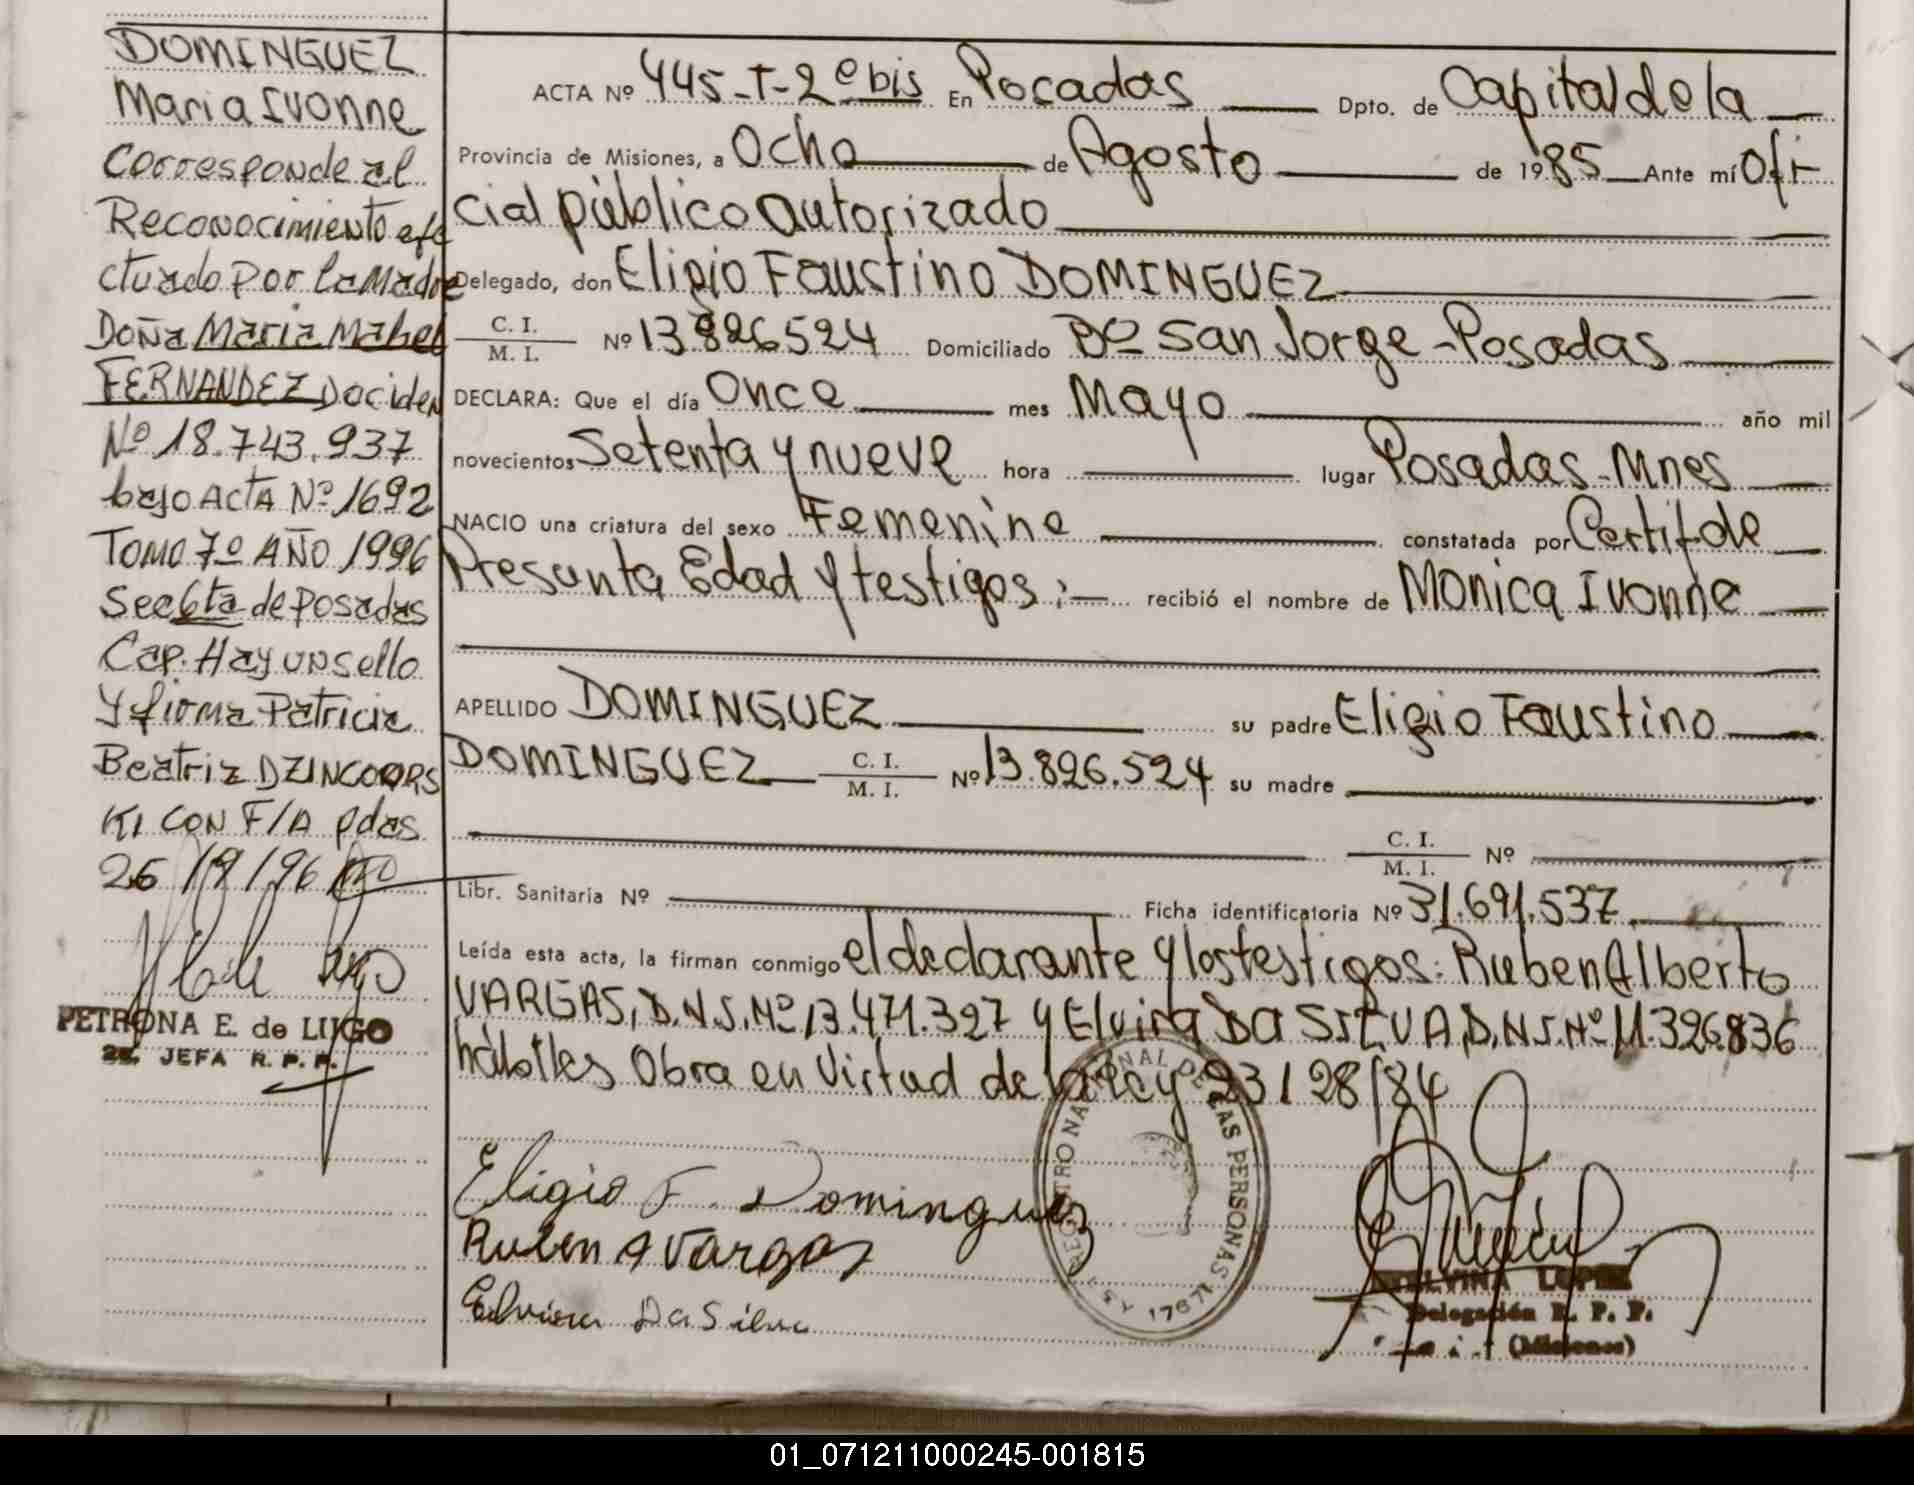 DOMINGUEZ
Maria Ivonne
Corresponde al
Reconocimiento efe
ctuado por la Madre
Doña Maria Mabel
FERNANDEZ Dociden
Nº 18.743.937
bajo ACTA Nº 1692
TOMO 7º AÑO 1996
Sec 6ta de Posadas
Cap. Hay un sello
y firma Patricia
Beatriz DZINCOORS
KI CON F/A pdas
26/9/96
PETRONA E. de LUGO
2ª. JEFA R. P. P.
ACTA Nº 445-T-2º bis En Pocadas Dpto. de Capital de la
Provincia de Misiones, a Ocho de Agosto de 1985 Ante mí Ofi-
cial público autorizado
Delegado, don Eligio Faustino DOMINGUEZ
C. I.
M. I. Nº 13826524 Domiciliado Bº San Jorge-Posadas
DECLARA: Que el día Once mes Mayo año mil
novecientos Setenta y nueve hora lugar Posadas-Mnes
NACIO una criatura del sexo Femenino constatada por Certif de
Presunta Edad y testigos:- recibió el nombre de Monica Ivonne
APELLIDO DOMINGUEZ su padre Eligio Faustino
DOMINGUEZ C. I.
M. I. Nº 13.826.524 su madre
C. I.
M. I. Nº
Libr. Sanitaria Nº Ficha identificatoria Nº 31.691.537
Leída esta acta, la firman conmigo el declarante y los testigos: Ruben Alberto
VARGAS, D.N.I. Nº 13.471.327 y Elvira DA SILVA, D.N.I. Nº 11.326.836
hábiles Obra en Virtud de la Ley 23128/84
Eligio F. Dominguez
Ruben A Vargas
Elvira Da Silva
REGISTRO NACIONAL DE LAS PERSONAS
LEY 17671
ETELVINA LOPEZ
Delegación R. P. P.
(Misiones)
01_071211000245-001815